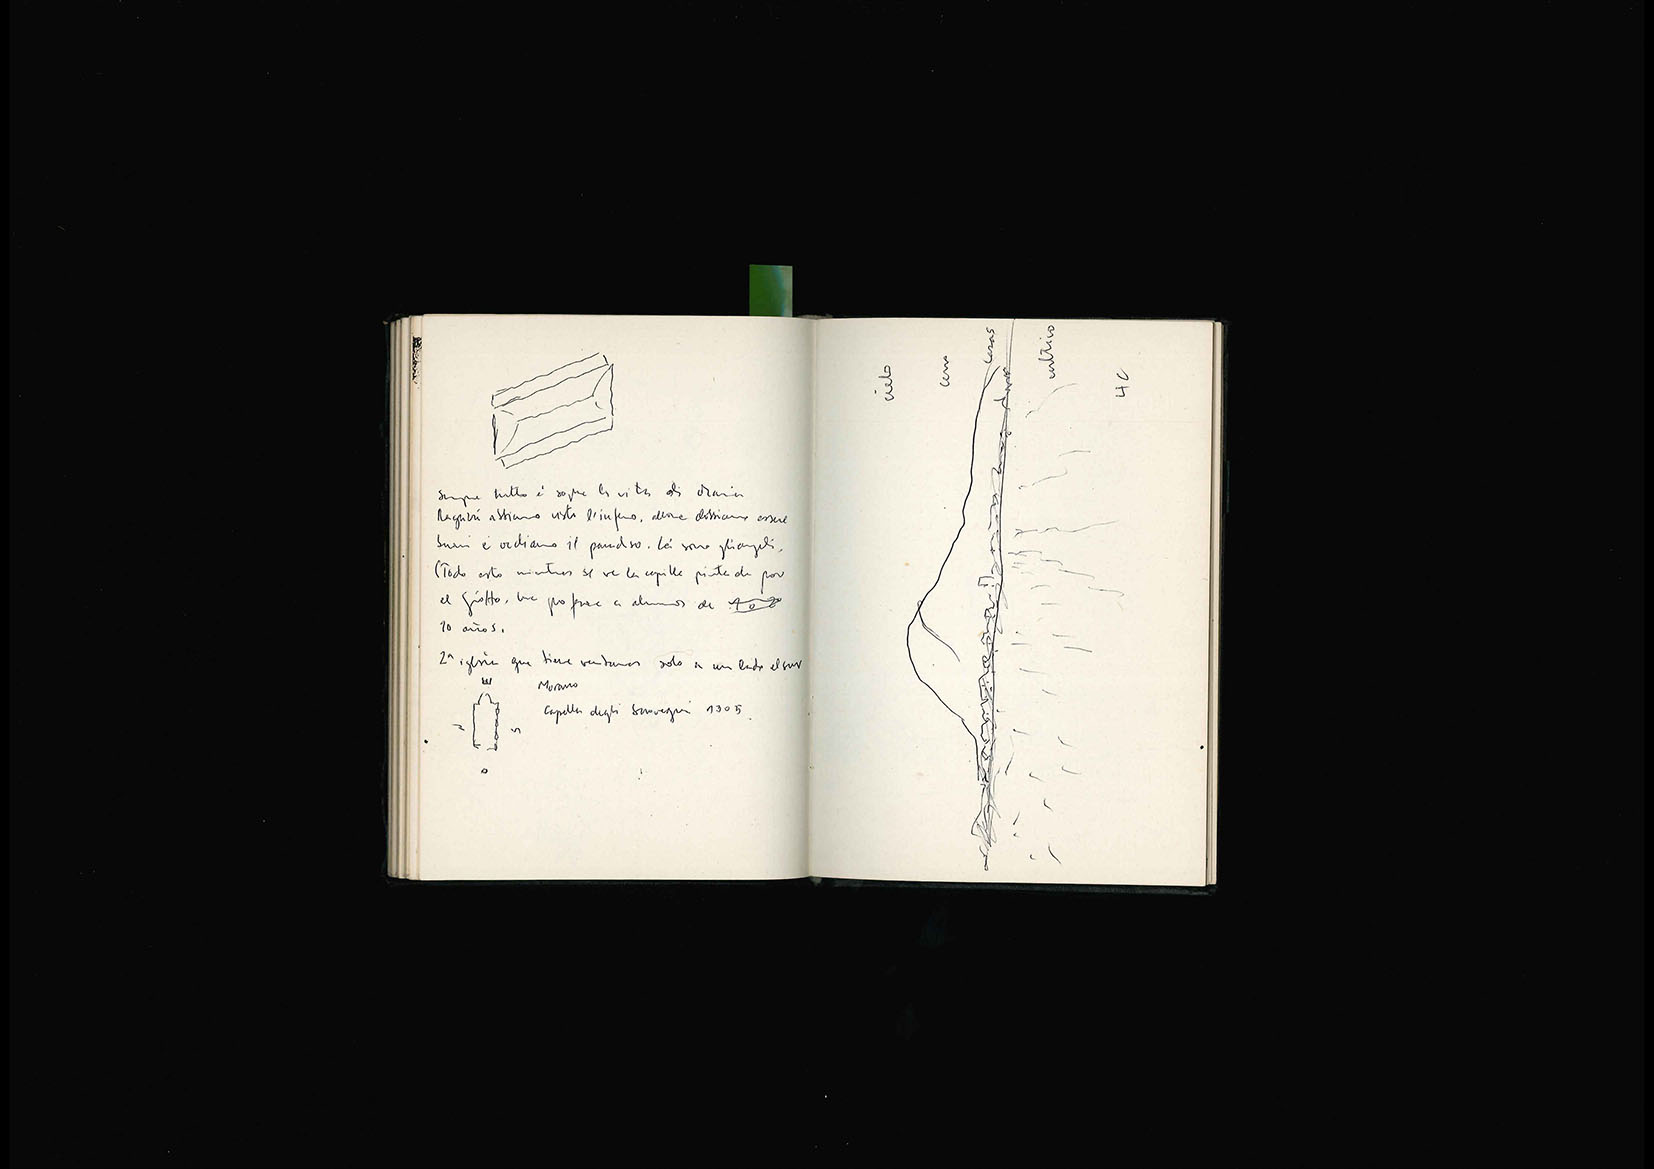 tutto è sopra la vita di Maria
Ragazzi abbiamo visto l'inferno, dove dobbiamo essere
buoni e vediamo il paradiso. Là sono gli angeli.
(Todo esto mientras se ve la capilla pintada por
el Giotto, un profesor a alumnos de
10 años.
2ª iglesia que tiene ventanas solo a un lado el sur
E
Capella degli Scrovegni 1305
N
S
O
cielo
cerro
casas
cultivo
4C